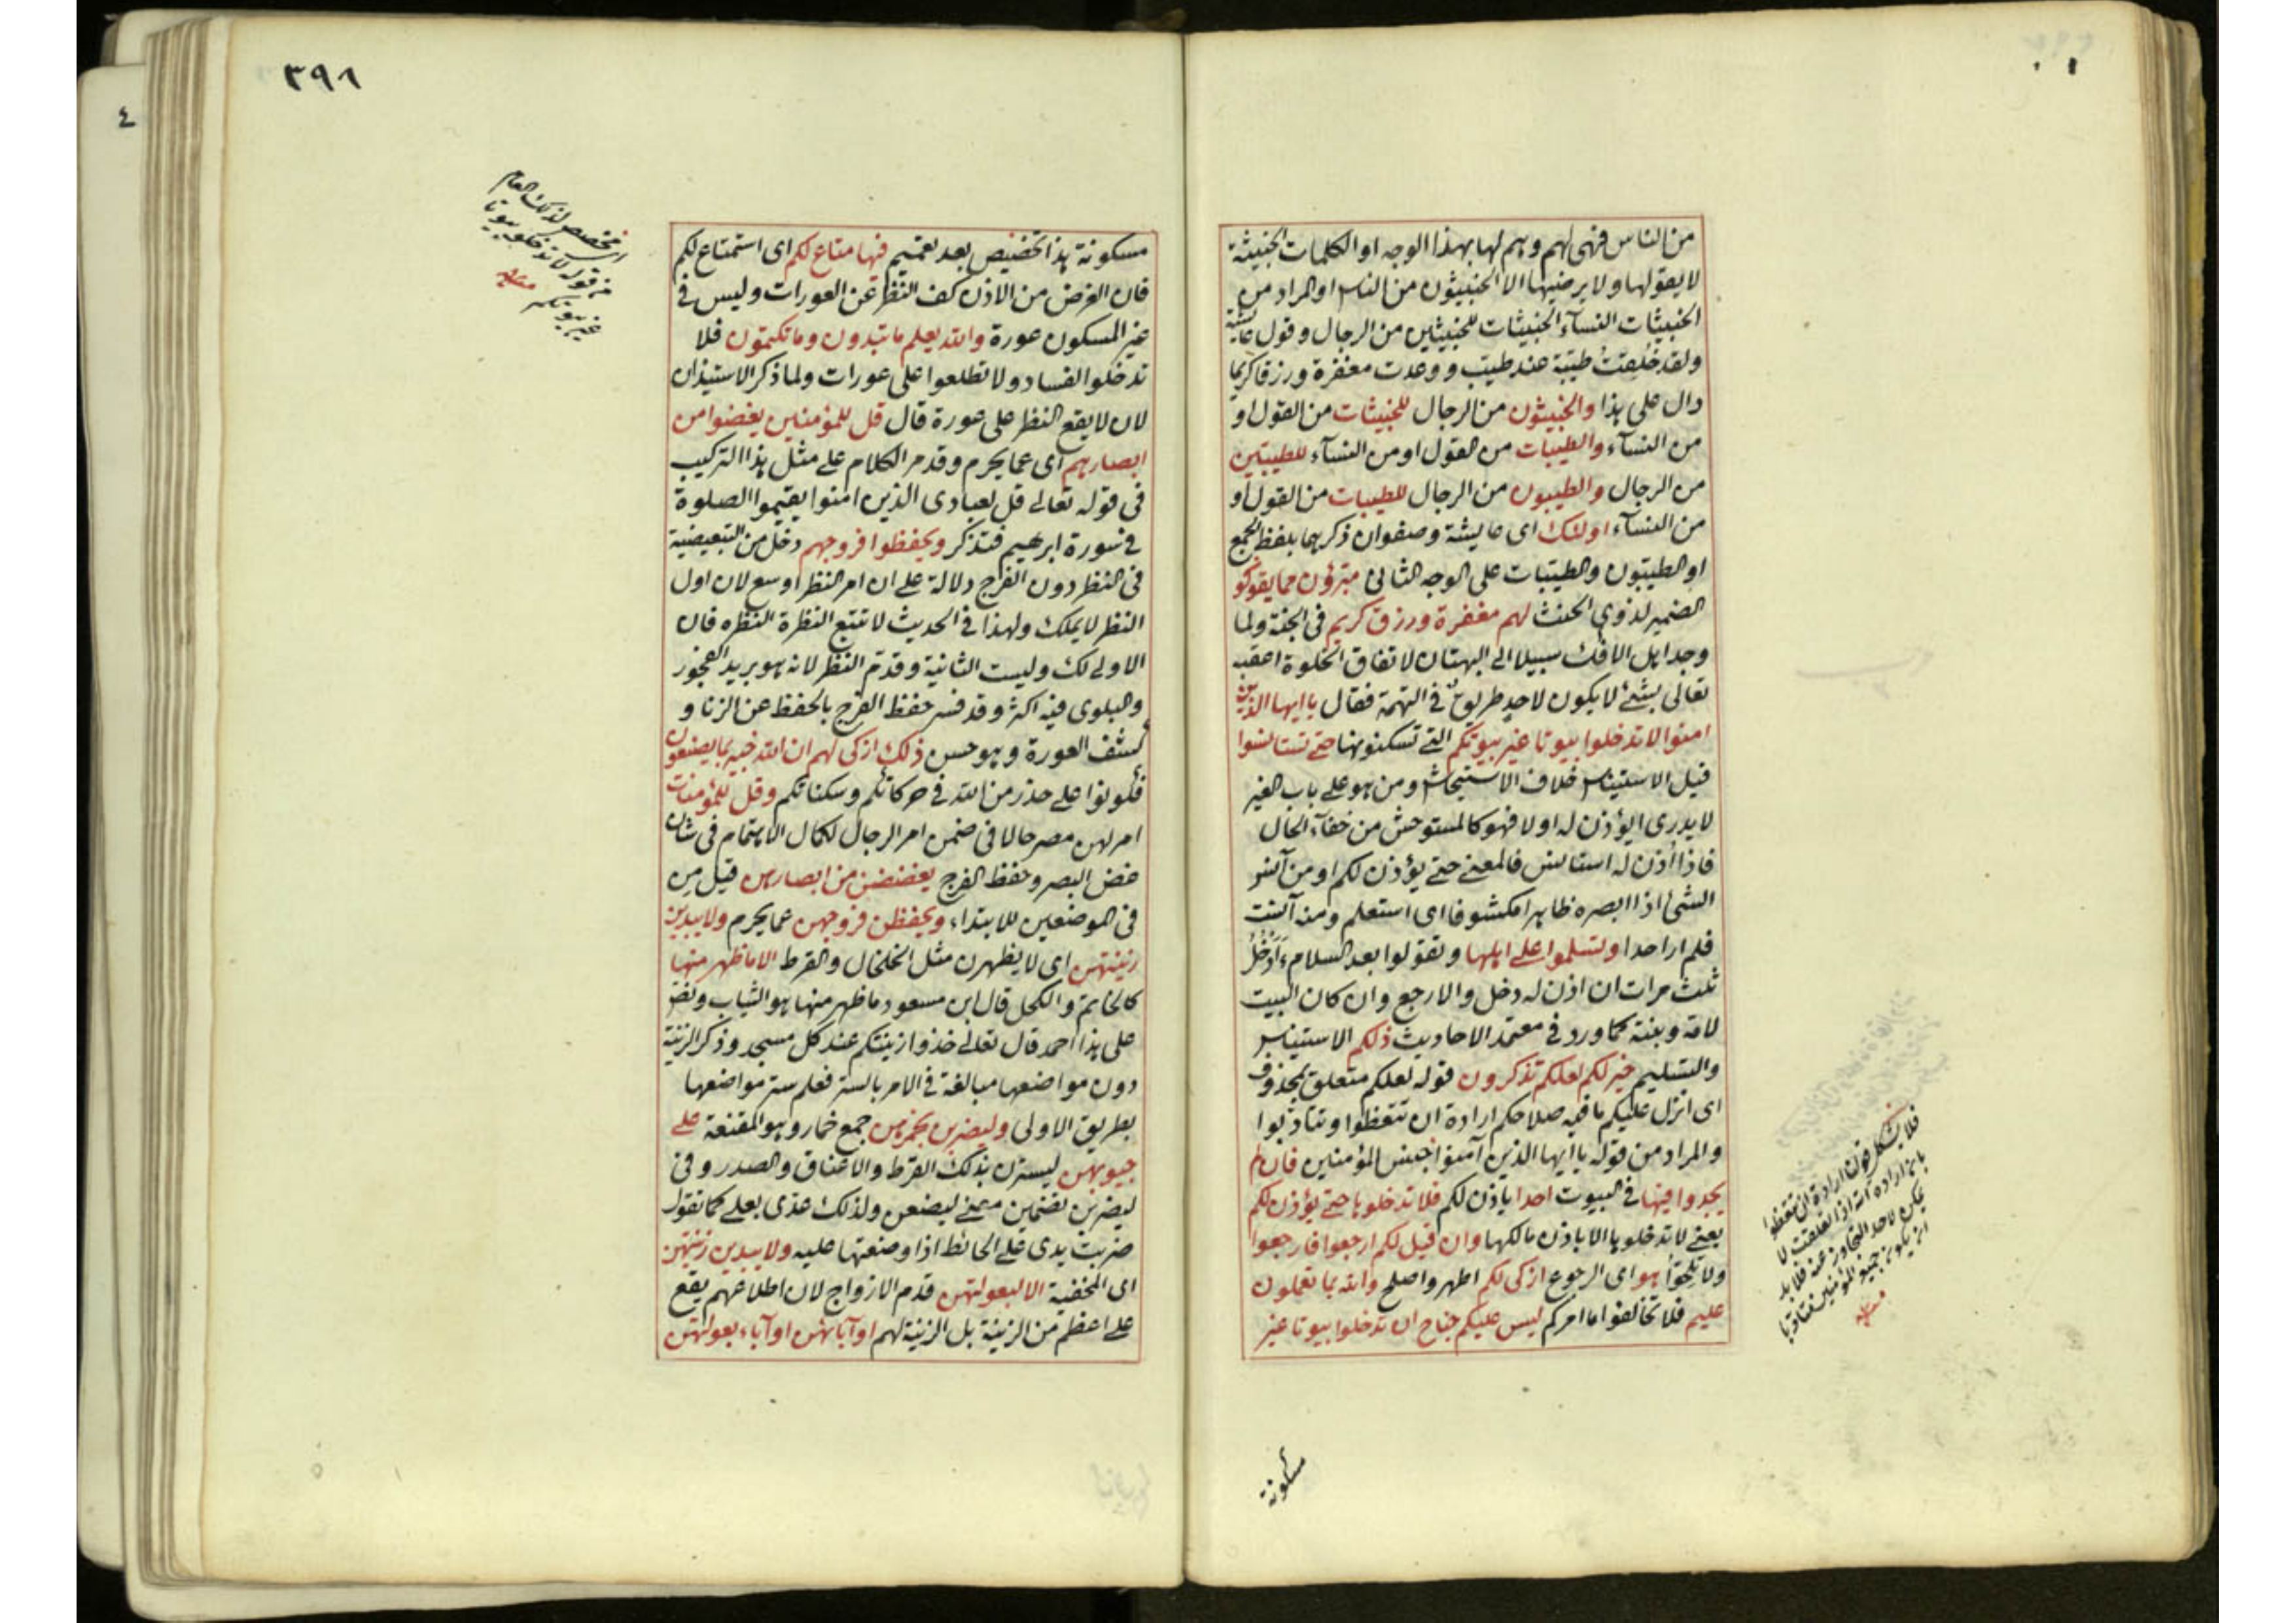 من الناس فهى لهم وهم لها بهذا الوجه او الكلمات الخبيثة
لا يقولها ولا يرضيها الا الخبيثون من الناس او المراد من
الخبيثات النسآء الخبيثات للخبيثين من الرجال وقول عايشة
ولقد خُلِقتُ طيّبة عند طيّب ووعدت مغفرة ورزقا كريما
دال على هذا والخبيثون من الرجال للخبيثات من القول او
من النسآء والطيبات من القول او من النسآء للطيبين
من الرجال والطيبون من الرجال للطيبات من القول او
من النسآء اولئك اى عايشة وصفوان ذكرهما بلفظ الجمع
او الطيّبون والطيّبات على الوجه الثانى مبرؤن مما يقولو
الضمير لذوى الخبث لهم مغفرة ورزق كريم فى الجنة ولما
وجد اهل الافك سبيلا الى البهتان لاتفاق الخلوة اعقبه
تعالى بشئ لا يكون لاحدٍ طريقٌ فى التهمة فقال يا ايها الذين
امنوا لا تدخلوا بيوتا غير بيوتكم التى تسكنونها حتى تستانسوا
قيل الاستيناس خلاف الاستيحاش ومن هو على باب الغير
لا يدرى ايؤذن له اولا فهو كالمستوحش من خفآء الحال
فاذا اُذن له استانس فالمعنى حتى يؤذن لكم او من آنس
الشئ اذا ابصره ظاهرا مكشوفا اى استعلم ومنه آنست
فلم ار احدا وتسلموا على اهلها وتقولوا بعد السلام ءَاَدخُلُ
ثلث مرات ان اذن له دخل والا رجع وان كان البيت
لامه وبنته كما ورد فى معتمد الاحاديث ذلكم الاستيناس
والتسليم خير لكم لعلكم تذكرون قوله لعلكم متعلق بمحذوف
اى انزل عليكم ما فيه صلاحكم ارادة ان تتعظوا وتتادّبوا
والمراد من قوله يا ايها الذين آمنوا جنس المؤمنين فان لم
تجدوا فيها فى البيوت احدا ياذن لكم فلا تدخلوها حتى يؤذن لكم
يعنى لا تدخلوها الا باذن مالكها وان قيل لكم ارجعوا فارجعوا
ولا تلحّوا هو اى الرجوع ازكى لكم اطهر واصلح والله بما تعملون
عليم فلا تخالفوا ما امركم ليس عليكم جناح ان تدخلوا بيوتا غير
فلا يشكل قوله ارادة ان تتعظوا
بان ارادة الله اذا تعلقت لا
يمكن لاحد التجاوز عنه فلا بد
ان يكون جميع المؤمنين متادبا
منه
مسكونة
٣٩٨
مسكونة هذا تخصيص بعد تعميم فيها متاع لكم اى استمتاع لكم
فان الغرض من الاذن كف النظر عن العورات وليس فى
غير المسكون عورة والله يعلم ما تبدون وما تكتمون فلا
تدخلوا لفساد ولا تطلعوا على عورات ولما ذكر الاستيذان
لان لا يقع النظر على عورة قال قل للمؤمنين يغضوا من
ابصارهم اى عما يحرم وقدم الكلام على مثل هذا التركيب
فى قوله تعالى قل لعبادى الذين امنوا يقيموا الصلوة
فى سورة ابرهيم فتذكر ويحفظوا فروجهم دخل من التبعيضية
فى النظر دون الفرج دلالة على ان امر النظر اوسع لان اول
النظر لا يملك ولهذا فى الحديث لا تتبع النظرة النظرة فان
الاولى لك وليست الثانية وقدّم النظر لانه هو بريد الفجور
والبلوى فيه اكثر وقد فسر حفظ الفرج بالحفظ عن الزنا و
كشف العورة وهو حسن ذلك ازكى لهم ان الله خبير بما يصنعون
فكونوا على حذر من الله فى حركاتكم وسكناتكم وقل للمؤمنات
امرهن مصرحا لا فى ضمن امر الرجال لكمال الاهتمام فى شان
غض البصر وحفظ الفرج يغضضن من ابصارهن قيل من
فى الموضعين للابتداء ويحفظن فروجهن عما يحرم ولا يبدين
زينتهن اى لا يظهرن مثل الخلخال والقرط الا ما ظهر منها
كالخاتم والكحل قال ابن مسعود ما ظهر منها هو الثياب ونص
على هذا احمد قال تعالى خذوا زينتكم عند كل مسجد وذكر الزينة
دون مواضعها مبالغة فى الامر بالستر فعلم ستر مواضعها
بطريق الاولى وليضربن بخمرهن جمع خمار وهو المقنعة على
جيوبهن ليسترن بذلك القرط والاعناق والصدر وفى
ليضربن تضمين معنى ليضعن ولذلك عدّى بعلى كما تقول
ضربت يدى على الحائط اذا وضعتها عليه ولا يبدين زينتهن
اى المخفية الا لبعولتهن قدم الازواج لان اطلاعهم يقع
على اعظم من الزينة بل الزينة لهم او آبائهن او آباء بعولتهن
اى تخصيص لذلك العام
من قوله لا تدخلوا بيوتا
غير بيوتكم منه
٤